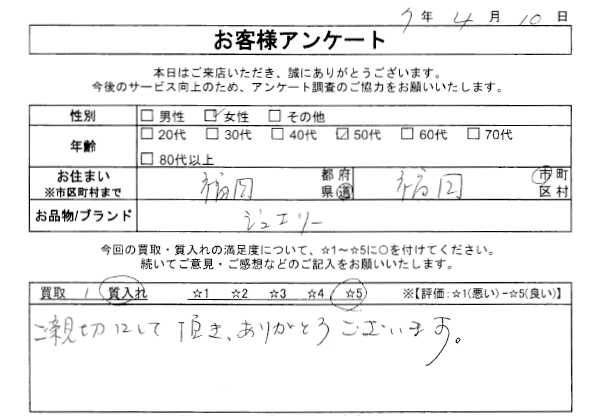 7年 4月 10日
お客様アンケート
本日はご来店いただき、誠にありがとうございます。
今後のサービス向上のため、アンケート調査のご協力をお願いいたします。
性別 □男性 ☑女性 □その他
年齢 □20代 □30代 □40代 ☑50代 □60代 □70代
□80代以上
お住まい ※市区町村まで 福岡 都府県道 福岡 市町区村
お品物/ブランド ジュエリー
今回の買取・質入れの満足度について、☆1～☆5に○を付けてください。
続いてご意見・ご感想などのご記入をお願いいたします。
買取 / 質入れ ☆1 ☆2 ☆3 ☆4 ☆5 ※【評価:☆1(悪い)-☆5(良い)】
ご親切にして頂き、ありがとうございます。